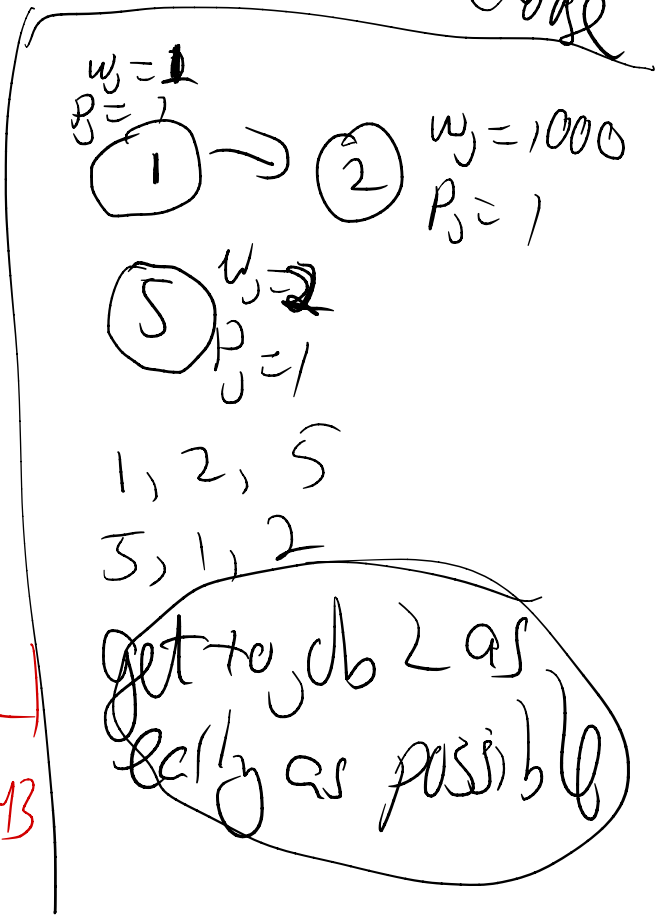 w_j = 1
P_j = 1
1 → 2
w_j = 1000
P_j = 1
5
w_j = 2
P_j = 1
1, 2, 5
5, 1, 2
get to job 2 as
early as possible